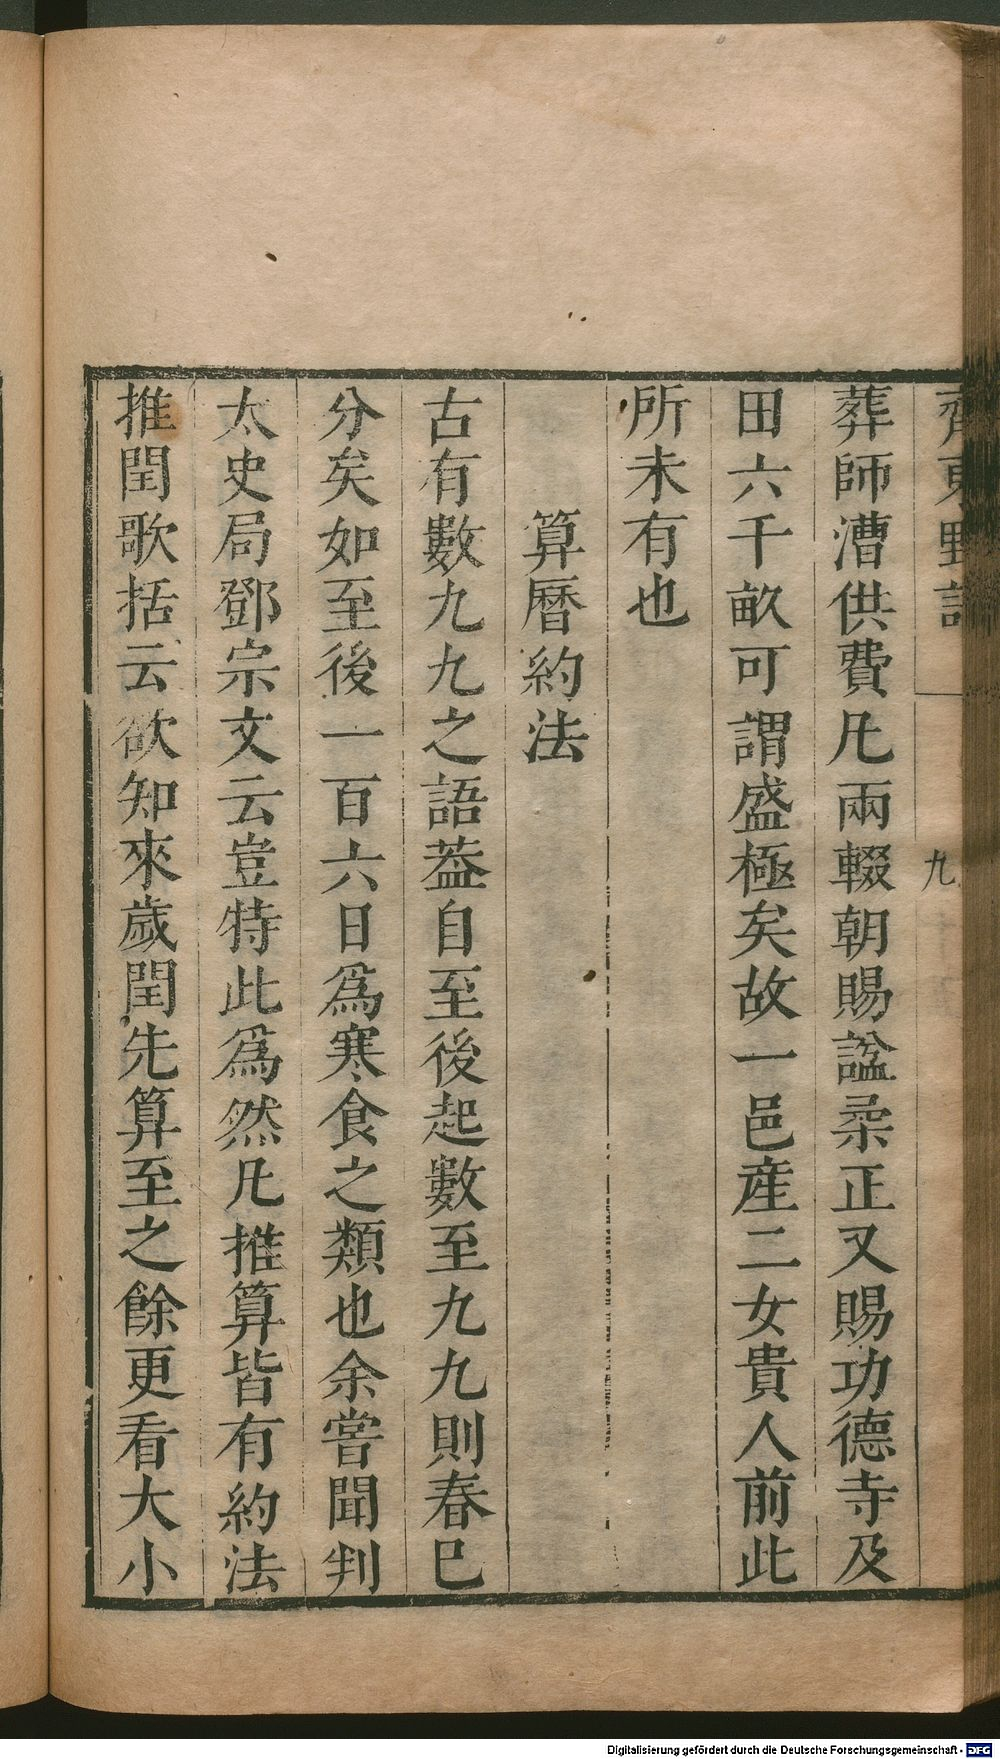 齊東野語
九
葬師漕供費凡兩輟朝賜諡柔正又賜功德寺及
田六千畝可謂盛極矣故一邑産二女貴人前此
所未有也
算曆約法
古有數九九之語葢自至後起數至九九則春已
分矣如至後一百六日爲寒食之類也余嘗聞判
太史局鄧宗文云豈特此爲然凡推算皆有約法
推閏歌括云欲知來歲閏先算至之餘更看大小
Digitalisierung gefördert durch die Deutsche Forschungsgemeinschaft - DFG